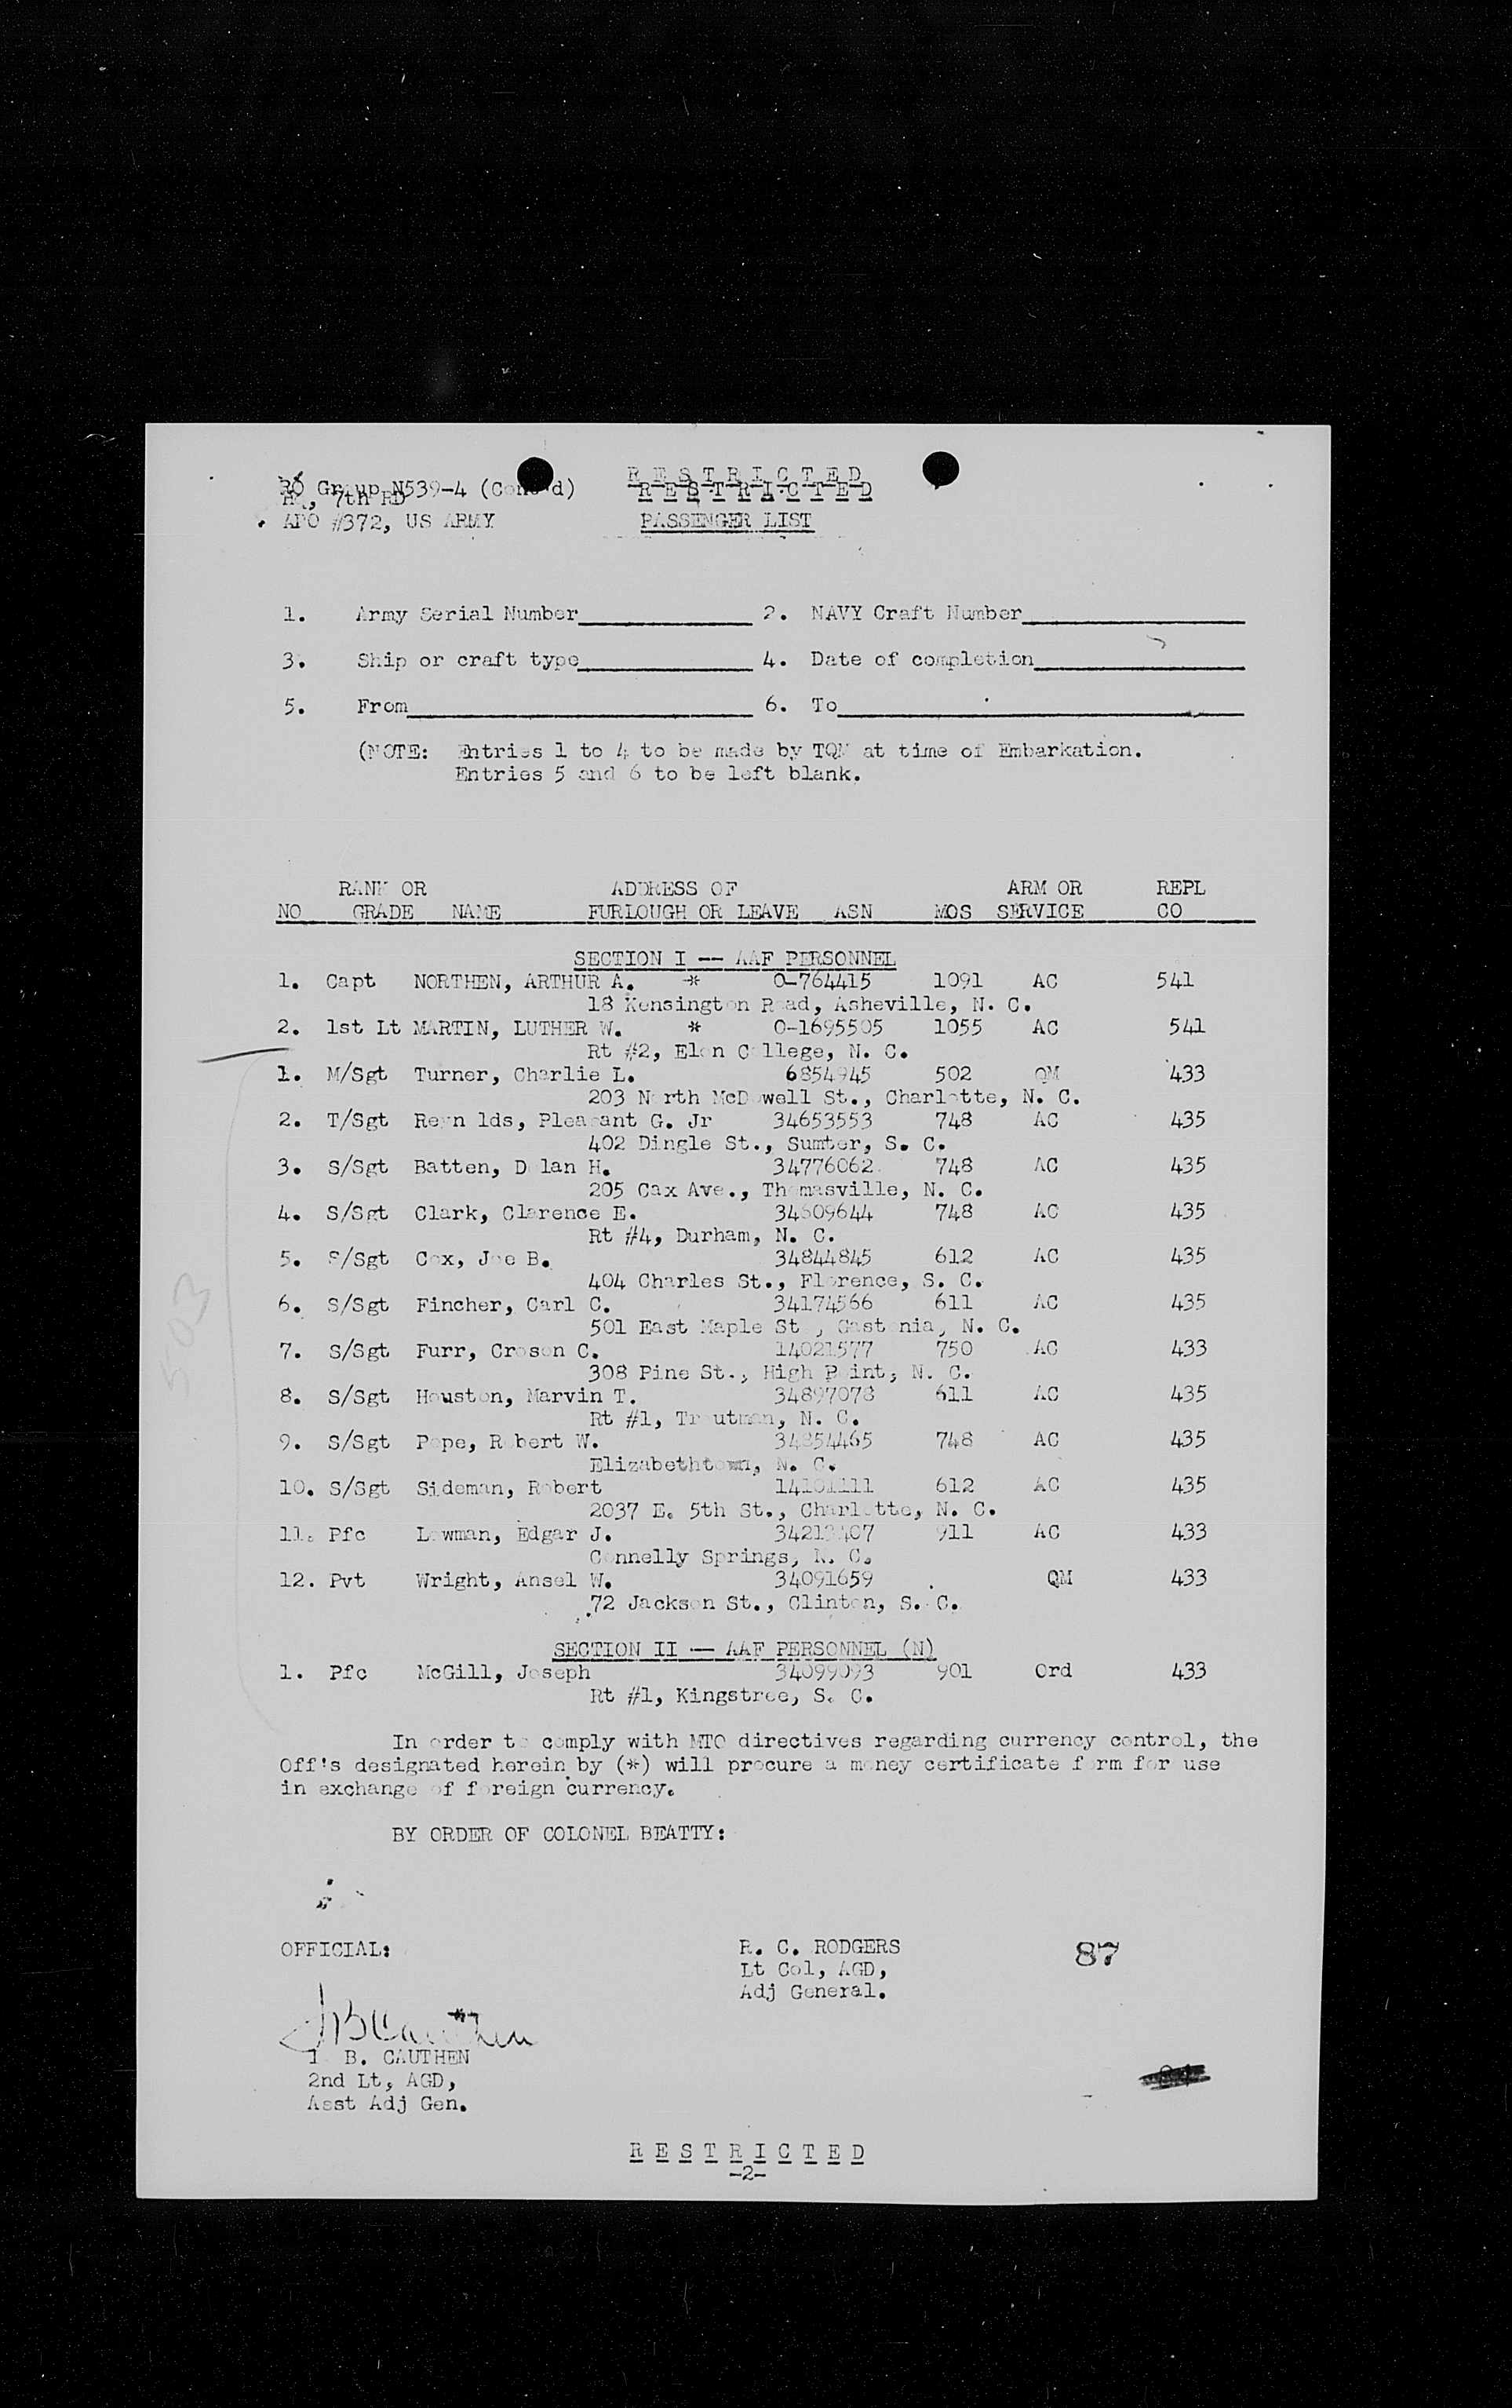 RO Group N539-4 (Cont'd)
R E S T R I C T E D
Hq, 7th RD
R E S T R I C T E D
APO #372, US ARMY
PASSENGER LIST
1. Army Serial Number 2. NAVY Craft Number
3. Ship or craft type 4. Date of completion
5. From 6. To
(NOTE: Entries 1 to 4 to be made by TQM at time of Embarkation.
Entries 5 and 6 to be left blank.
RANK OR ADDRESS OF ARM OR REPL
NO GRADE NAME FURLOUGH OR LEAVE ASN MOS SERVICE CO
SECTION I -- AAF PERSONNEL
1. Capt NORTHEN, ARTHUR A. * O-764415 1091 AC 541
18 Kensington Road, Asheville, N. C.
2. 1st Lt MARTIN, LUTHER W. * O-1695505 1055 AC 541
Rt #2, Elon College, N. C.
1. M/Sgt Turner, Charlie L. 6854945 502 QM 433
203 North McDowell St., Charlotte, N. C.
2. T/Sgt Reynolds, Pleasant G. Jr 34653553 748 AC 435
402 Dingle St., Sumter, S. C.
3. S/Sgt Batten, Dolan H. 34776062 748 AC 435
205 Cax Ave., Thomasville, N. C.
4. S/Sgt Clark, Clarence E. 34609644 748 AC 435
Rt #4, Durham, N. C.
5. S/Sgt Cox, Joe B. 34844845 612 AC 435
404 Charles St., Florence, S. C.
6. S/Sgt Fincher, Carl C. 34174566 611 AC 435
501 East Maple St., Gastonia, N. C.
7. S/Sgt Furr, Croson C. 14021577 750 AC 433
308 Pine St., High Point, N. C.
8. S/Sgt Houston, Marvin T. 34897078 611 AC 435
Rt #1, Troutman, N. C.
9. S/Sgt Pope, Robert W. 34854465 748 AC 435
Elizabethtown, N. C.
10. S/Sgt Sideman, Robert 14101111 612 AC 435
2037 E. 5th St., Charlotte, N. C.
11. Pfc Lowman, Edgar J. 911 AC 433
Connelly Springs, N. C.
12. Pvt Wright, Ansel W. 34091659 QM 433
72 Jackson St., Clinton, S. C.
503
SECTION II -- AAF PERSONNEL (N)
1. Pfc McGill, Joseph 34099093 901 Ord 433
Rt #1, Kingstree, S. C.
In order to comply with MTO directives regarding currency control, the
Off's designated herein by (*) will procure a money certificate form for use
in exchange of foreign currency.
BY ORDER OF COLONEL BEATTY:
OFFICIAL:
R. C. RODGERS
Lt Col, AGD,
Adj General.
87
B. CAUTHEN
2nd Lt, AGD,
Asst Adj Gen.
R E S T R I C T E D
-2-